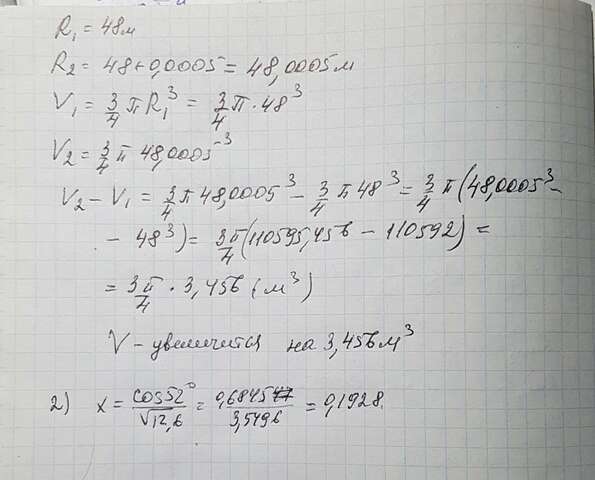 R₁ = 48м
R₂ = 48+0,0005 = 48,0005м
V₁ = 3/4 π R₁³ = 3/4 π · 48³
V₂ = 3/4 π 48,0005³
V₂ - V₁ = 3/4 π 48,0005³ - 3/4 π 48³ = 3/4 π (48,0005³ -
- 48³) = 3π/4 (110595,456 - 110592) =
= 3π/4 · 3,456 (м³)
V - увеличится на 3,456 м³
2) x = cos 52° / √12,6 = 0,6845 / 3,5496 = 0,1928.